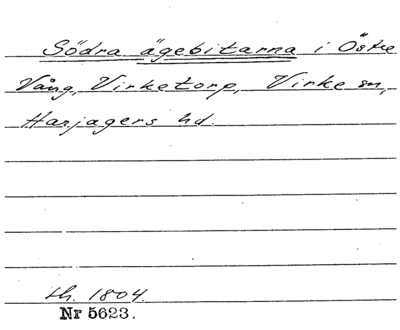 Södra ägebitarna i Östre
Vång, Virketorp, Virke sn,
Harjagers hd.
th. 1804.
Nr 5623.